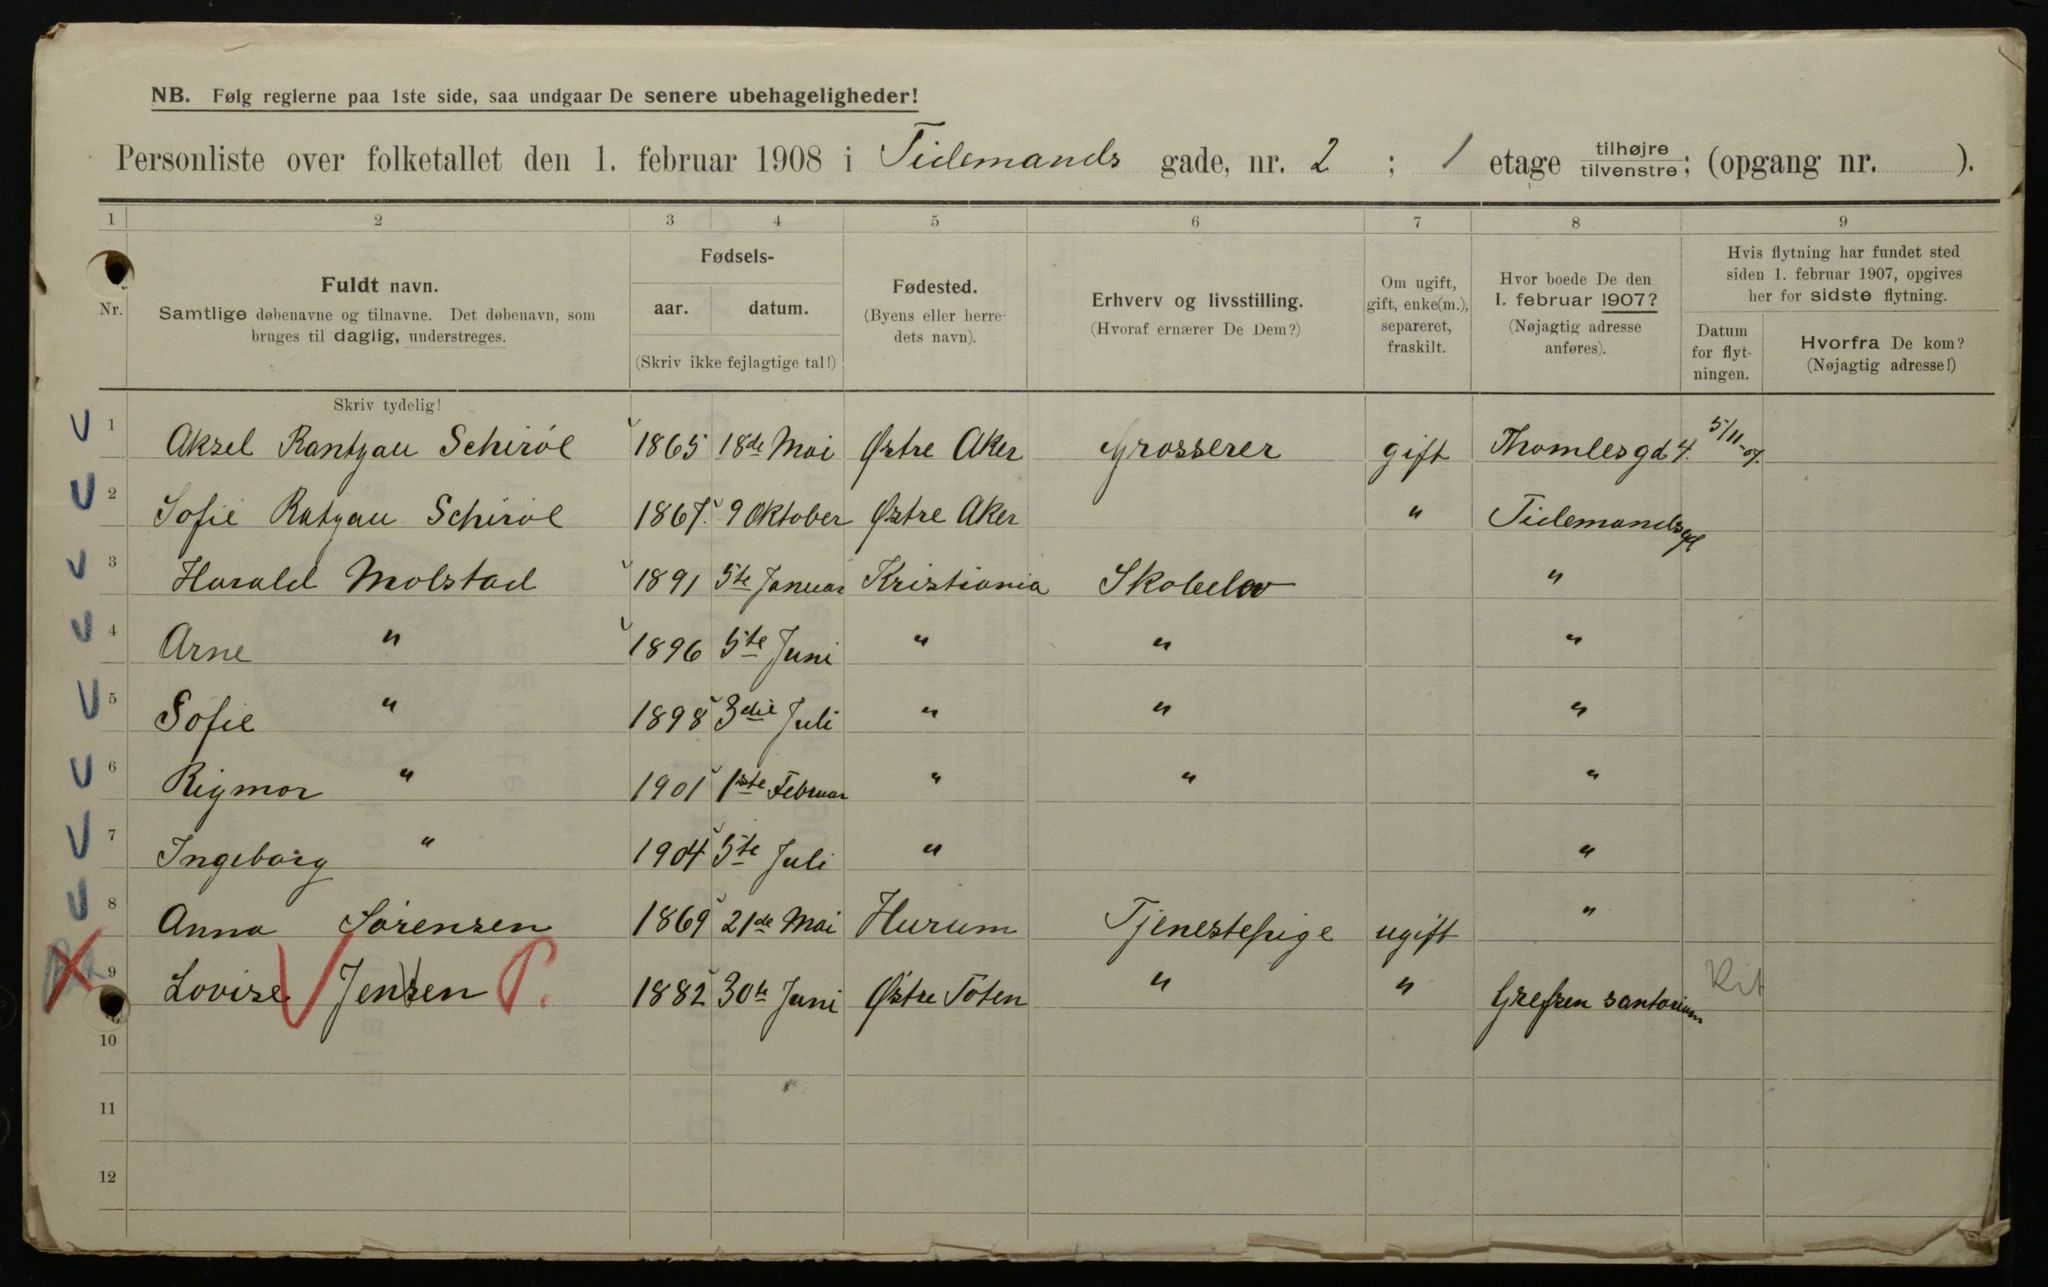 NB. Følg reglerne paa 1ste side, saa undgaar De senere ubehageligheder!
Personliste over folketallet den 1. februar 1908 i Tidemands gade, nr. 2 ; 1 etage tilhøjre tilvenstre; (opgang nr. ).
1 2 3 4 5 6 7 8 9
Nr.
Fuldt navn.
Samtlige døbenavne og tilnavne. Det døbenavn, som
bruges til daglig, understreges.
Fødsels-
aar. datum.
(Skriv ikke fejlagtige tal!)
Fødested.
(Byens eller herre-
dets navn).
Erhverv og livsstilling.
(Hvoraf ernærer De Dem?)
Om ugift,
gift, enke(m.),
separeret,
fraskilt.
Hvor boede De den
1. februar 1907?
(Nøjagtig adresse
anføres).
Hvis flytning har fundet sted
siden 1. februar 1907, opgives
her for sidste flytning.
Datum
for flyt-
ningen.
Hvorfra De kom?
(Nøjagtig adresse!)
Skriv tydelig!
1 Aksel Rantzau Schiröe 1865 18de Mai Østre Aker Grosserer gift Thomlesgd 4. 5/11-07.
2 Sofie Ratzau Schiröe 1867. 9 Oktober Østre Aker " Tidemandsgd
3 Harald Molstad 1891 5te Januar Kristiania Skoleelev "
4 Arne " 1896 5te Juni " " "
5 Sofie " 1898 3die Juli " " "
6 Rigmor " 1901 1ste Februar " " "
7 Ingeborg " 1904 5te Juli " "
8 Anna Sörensen 1869 21de Mai Hurum Tjenestepige ugift "
9 Lovise Jensen P. 1882 30te Juni Østre Toten " " Grefsen santorium
10
11
12